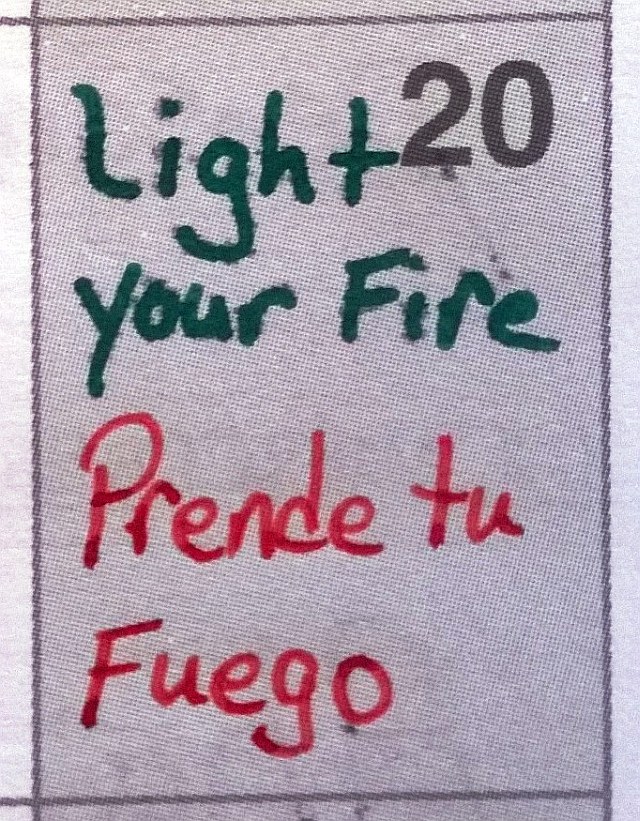 Light 20
your Fire
Prende tu
Fuego